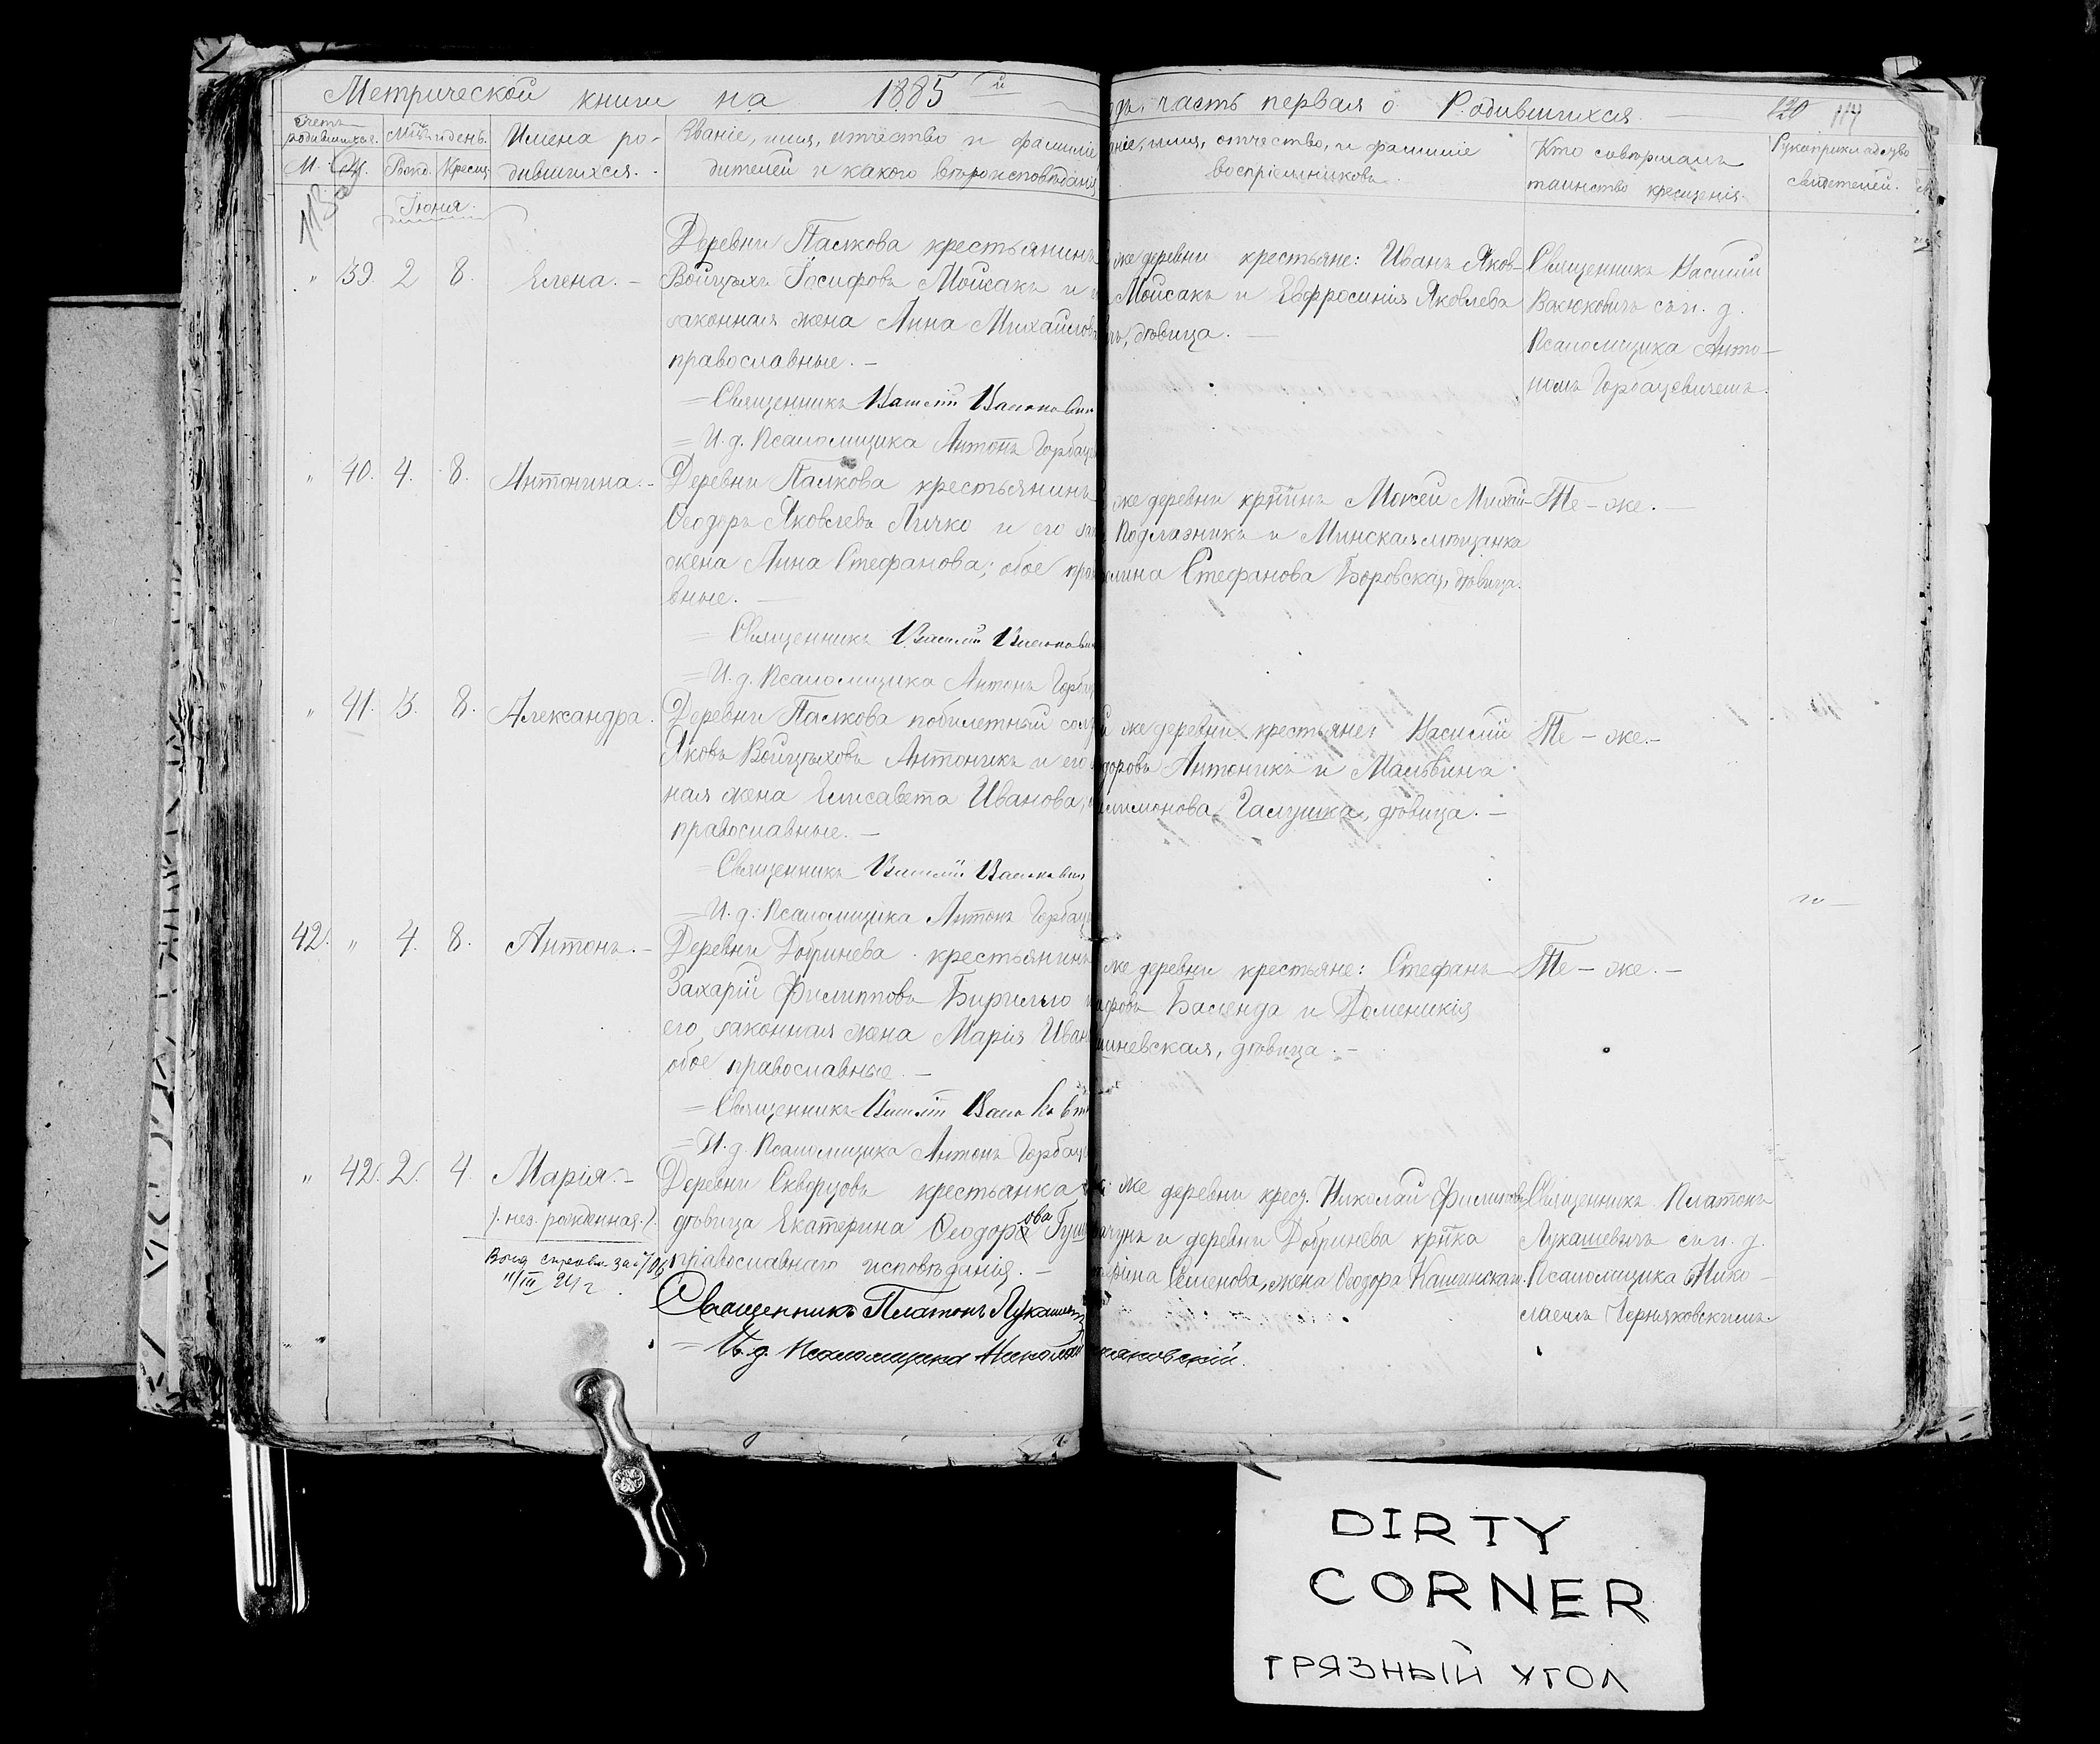 Метрической книги на 1885 й
дъ, часть первая о Родившихся. 120 114
Счетъ родившихся.
М. Ж.
Мѣс. и день.
Рожд. Крещ.
Имена ро-
дившихся.
Званіе, имя, отчество и фамилія
дителей и какого вѣроисповѣданія
аніе, имя, отчество, и фамилія
воспріемниковъ.
Кто совершалъ
таинство крещенія.
Рукоприкладство
свидѣтелей.
113 об
Іюня.
" 39. 2 8. Елена. –
Деревни Палкова крестьянинъ
Войцѣхъ Іосифовъ Мойсакъ и е
законная жена Анна Михайлова
православные. –
= Священникъ Василій Васюкович
= И. д. Псаломщика Антонъ Горбаце
же деревни крестьяне: Иванъ Яков-
Мойсакъ и Евфросинія Яковлева
дѣвица. –
Священникъ Василій
Васюковичъ съ и. д.
Псаломщика Анто-
номъ Горбацевичемъ.
" 40. 4. 8. Антонина. –
Деревни Палкова крестьянинъ
Ѳеодоръ Яковлевъ Личко и его зак
жена Анна Стефанова; обое прав
вные. –
= Священникъ Василій Васюкович
= И. д. Псаломщика Антонъ Горбац
же деревни кр҃нинъ Моисей Михай-
Подлазникъ и Минская мѣщанка
Стефанова Боровская, дѣвица.
Тѣ – же. –
" 41. 3. 8. Александра.
Деревни Палкова побилетный солд
Яковъ Войцѣховъ Антоникъ и его з
ная жена Елисавета Иванова,
православные. –
= Священникъ Василій Васюкович
= И. д. Псаломщика Антонъ Горбац
й же деревни крестьяне: Василій
доровъ Антоникъ и Мальвина
лимонова Галушка, дѣвица. –
Тѣ – же. –
42. " 4. 8. Антонъ. –
Деревни Добринева крестьянинъ
Захарій Филипповъ Бирилло и
его законная жена Марія Иван
обое православные. –
= Священникъ Василій Васюкович
= И. д. Псаломщика Антонъ Горбац
же деревни крестьяне: Стефанъ
Баленда и Доменикія
шневская, дѣвица. –
Тѣ – же. –
" 42. 2. 4 Марія. –
/. нез. рожденная. /.
11/III 24 г.
Деревни Скворцовъ крестьянка
дѣвица Екатерина Ѳеодорова
православнаго исповѣданія. –
Священникъ Платонъ Лукашев
= И. д. Псаломщика Николай
няковскій.
же деревни крест. Николай Филиповъ
и деревни Добринева кр҃нка
Семенова, жена Ѳеодора Кашинская.
Священникъ Платонъ
Лукашевичъ съ и. д.
Псаломщика Нико-
лаемъ Черняковскимъ
DIRTY
CORNER
ГРЯЗНЫЙ УГОЛ